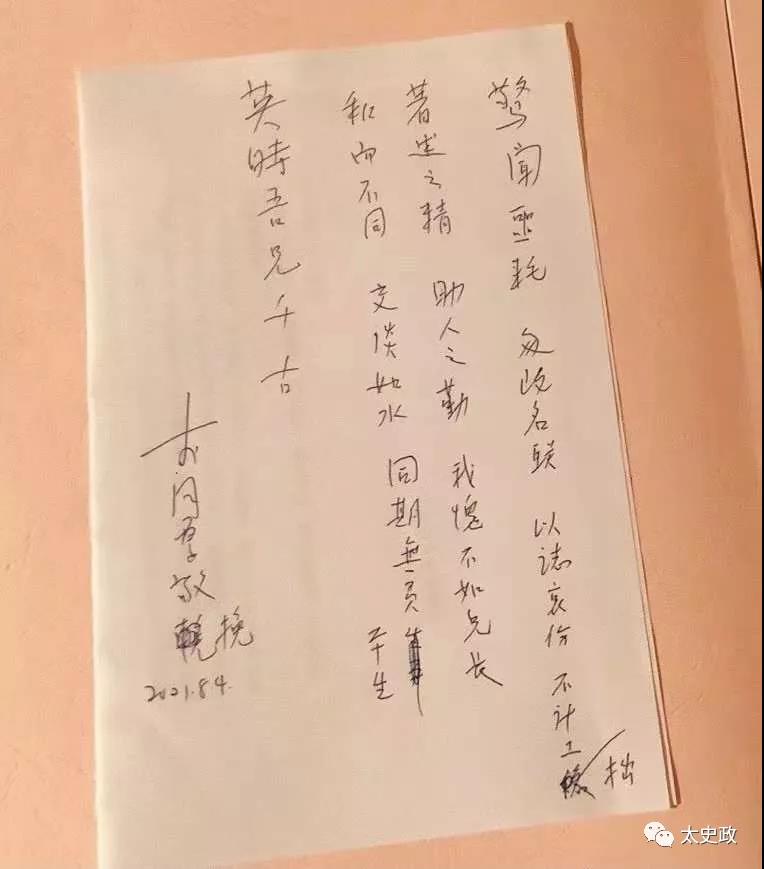 驚聞噩耗 匆改名聯 以誌哀伤 不計工拙
著述之精 助人之勤 我愧不如兄长
和而不同 交淡如水 同期無負平生
英時吾兄千古
敬挽
2021.8.4.
太史政